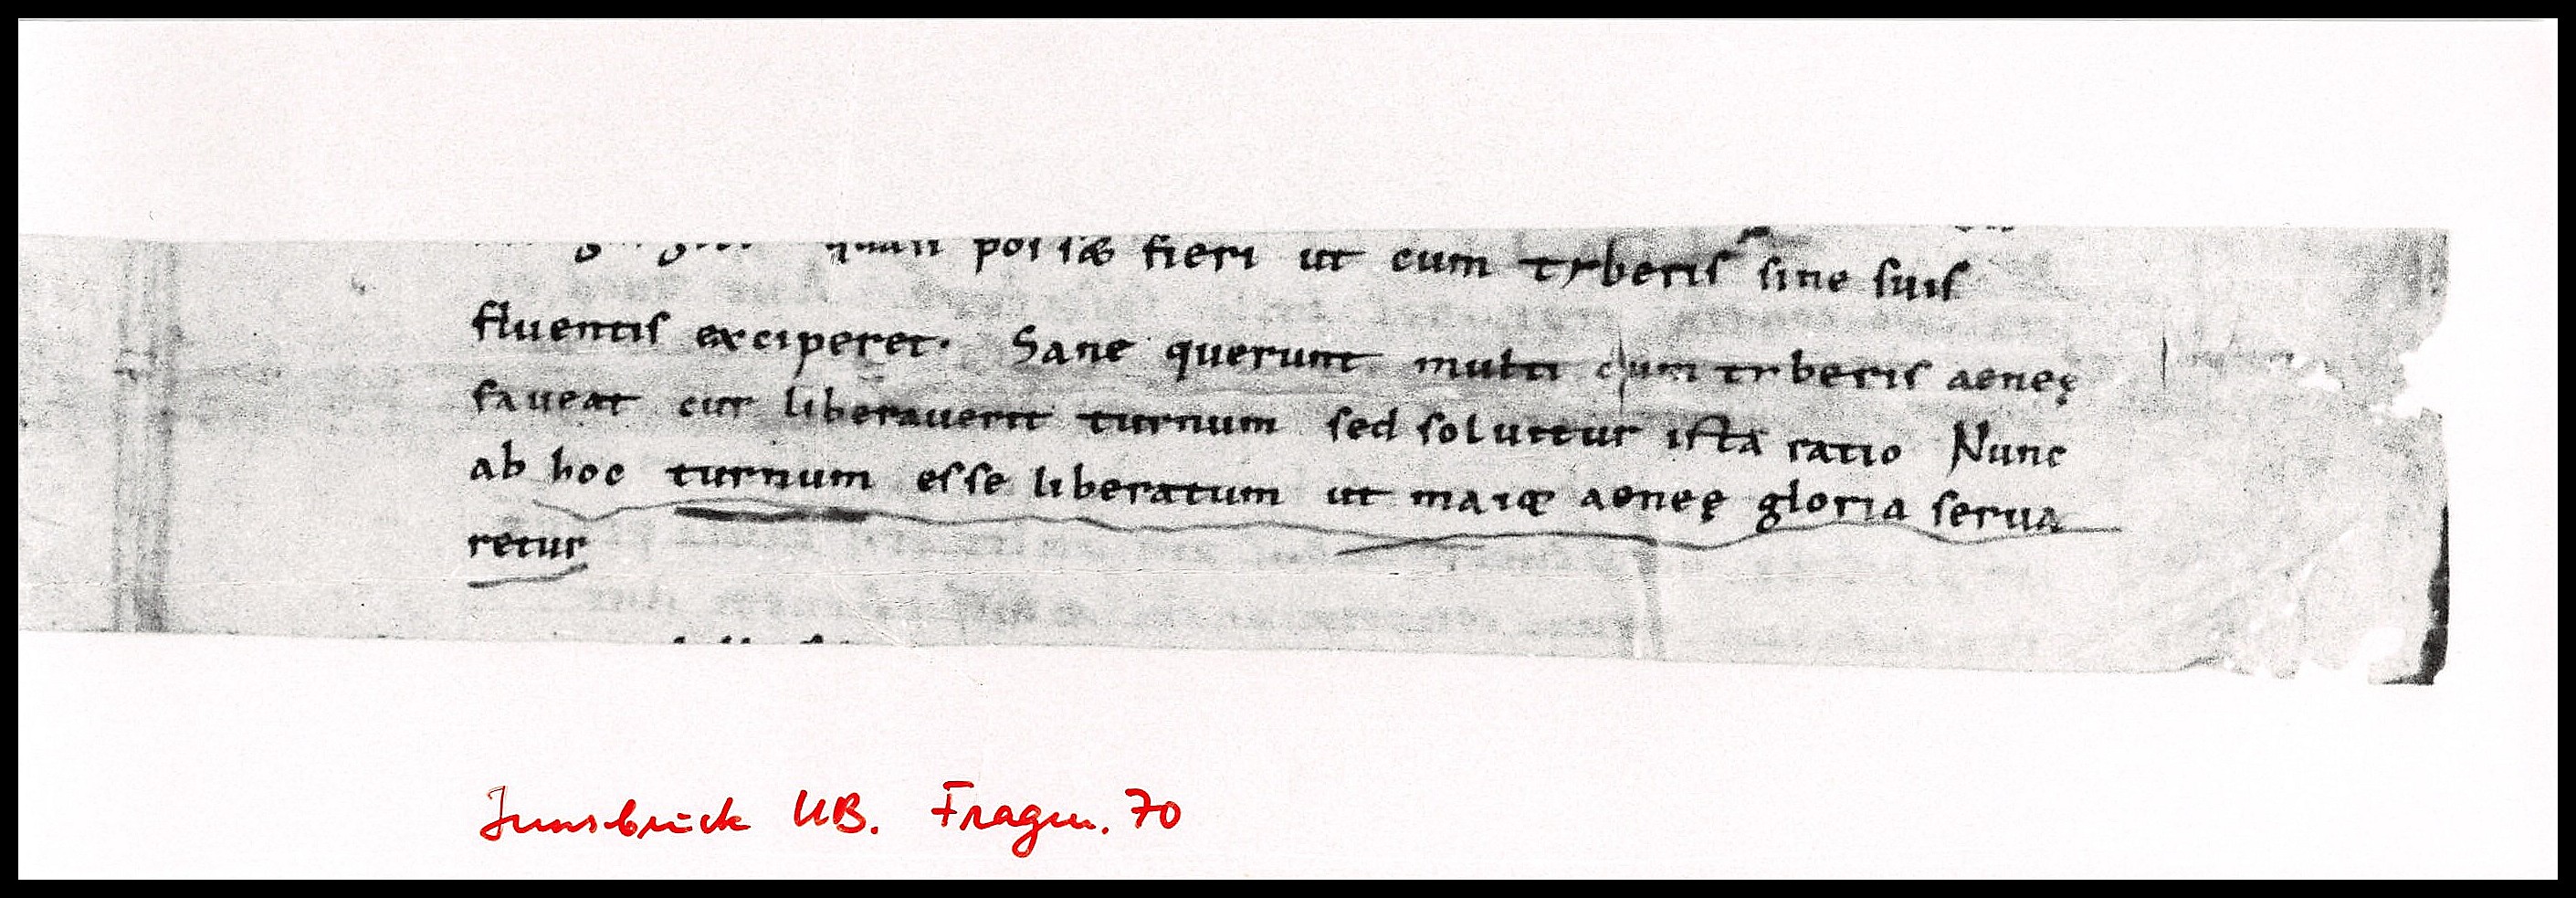 poscæ fieri ut cum tyberis sine suis
fluentis exciperet. Sane querunt multi cum tyberis aeneę
faveat cur liberaverit turnum sed solvitur ista ratio Nunc
ab hoc turnum esse liberatum ut maior aeneę gloria serva
retur
Innsbruck UB. Fragm. 70